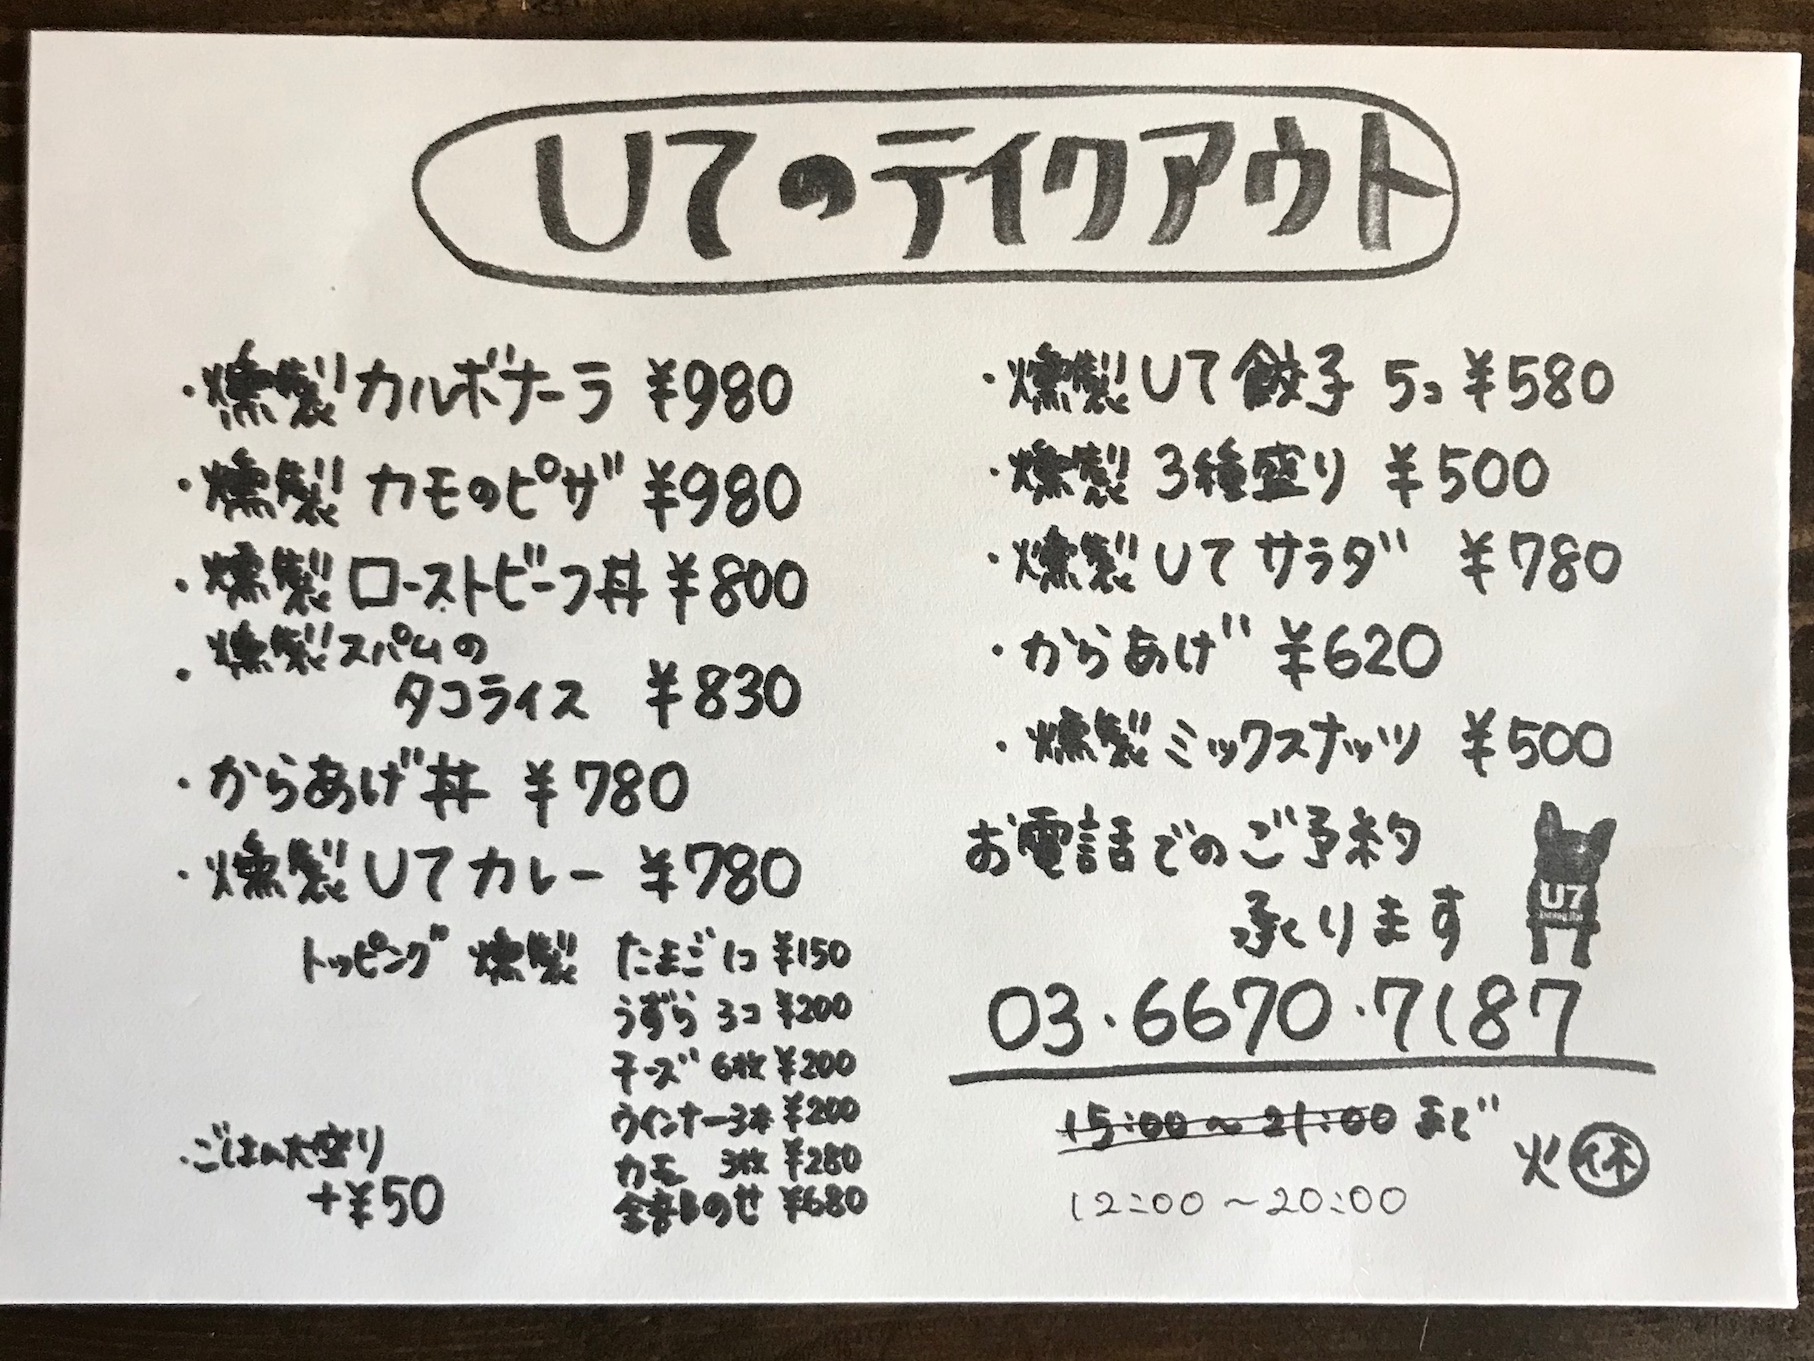 U7のテイクアウト
・燻製カルボナーラ ¥980
・燻製カモのピザ ¥980
・燻製ローストビーフ丼 ¥800
・燻製スパムの
タコライス ¥830
・からあげ丼 ¥780
・燻製U7カレー ¥780
トッピング 燻製 たまご1コ ¥150
うずら 3コ ¥200
チーズ 6枚 ¥200
ウインナー3本 ¥200
カモ 3枚 ¥280
全部のせ ¥680
・ごはん大盛り
+¥50
・燻製U7餃子 5コ ¥580
・燻製3種盛り ¥500
・燻製U7サラダ ¥780
・からあげ ¥620
・燻製ミックスナッツ ¥500
お電話でのご予約
承ります
U7
03・6670・7187
15:00〜21:00 まで
火㊡
12:00〜20:00